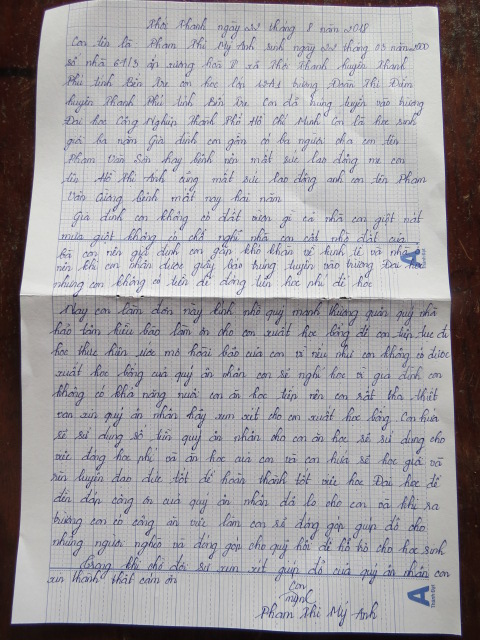 Thới Thạnh ngày 22 tháng 8 năm 2018
Con tên là Phạm Thị Mỹ Anh sinh ngày 22 tháng 03 năm 2000
số nhà 61/3 ấp xương hoà II xã Thới Thạnh huyện Thạnh
Phú tỉnh Bến Tre con học lớp 12A1 trường Đoàn Thị Điểm
huyện Thạnh Phú tỉnh Bến Tre Con đã trúng tuyển vào trường
Đại học Công Nghiệp Thành Phố Hồ Chí Minh Con là học sinh
giỏi ba năm Gia đình con gồm có ba người cha con tên
Phạm Văn Sơn hay bệnh nên mất sức lao động mẹ con
tên Hồ Thị Ánh cũng mất sức lao động anh con tên Phạm
Văn Giang bệnh mất nay hai năm
Gia đình con không có đất vườn gì cả nhà con giột nát
mưa giột không có chổ nghĩ nhà con cất nhờ đất của
bà con nên gia đình con gặp khó khăn về kinh tế và nhà
nên khi con nhận được giấy báo trúng tuyển vào trường Đại học
nhưng con không có tiền để đóng tiền học phí để học
Nay con làm đơn này kính nhờ quý mạnh thường quân quý nhà
hảo tâm hiểu bảo làm ơn cho con xuất học bổng để con tiếp tục đi
học thực hiện ước mơ hoài bảo của con vì nếu như con không có được
xuất học bổng của quý ân nhân con sẽ nghỉ học vì gia đình con
không có khả năng nuôi con ăn học tiếp nên con rất tha thiết
van xin quý ân nhân hãy xem xét cho con xuất học bổng. Con hứa
sẽ sử dụng số tiền quý ân nhân cho con ăn học sẽ sử dụng cho
việc đóng học phí và ăn học của con và con hứa sẽ học giỏi và
rèn luyện đạo đức tốt để hoàn thành tốt việc học Đại học để
đền đáp công ơn của quý ân nhân đã lo cho con và khi ra
trường con có công ăn việc làm con sẽ đóng góp giúp đỡ cho
những người nghèo và đóng góp cho quỹ hội để hỗ trợ cho học sinh
Trong khi chờ đợi sự xem xét giúp đỡ của quý ân nhân con
xin thành thật cảm ơn
Con
Mỹ Anh
Phạm Thị Mỹ Anh
A
A